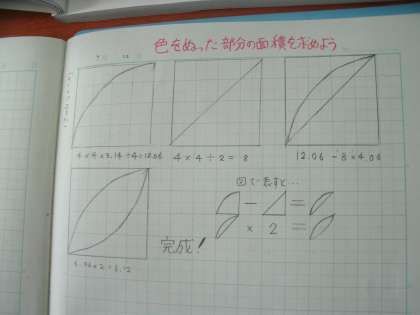 色をぬった部分の面積を求めよう
4×4×3.14÷4=12.56
4×4÷2=8
12.56-8=4.56
図で表すと…
- =
× 2 =
完成!
4.56×2=9.12